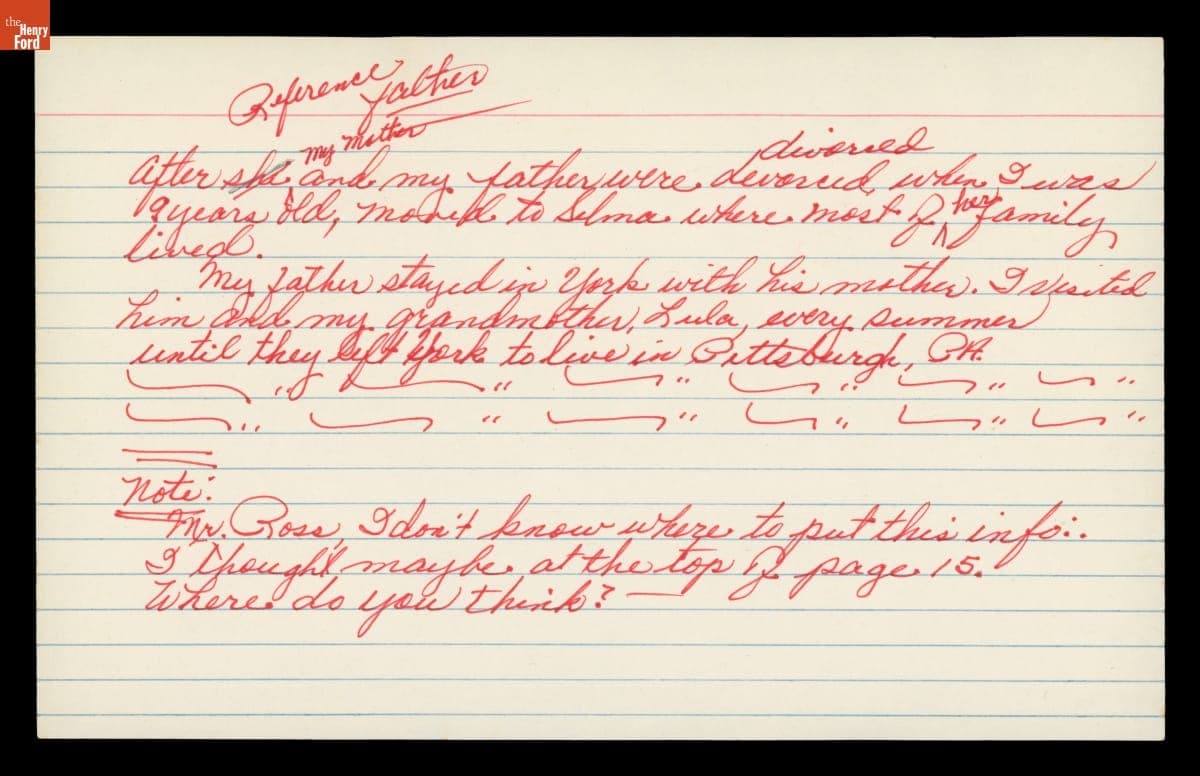 the Henry Ford
Reference father
my mother divorced
After she and my father were devorced, when I was
9 years old, moved to Selma where most of her family
lived.
My father stayed in York with his mother. I visited
him and my grandmother, Lula, every summer
until they left York to live in Pittsburgh, PA.
Note:
Mr. Ross, I don't know where to put this info:.
I thought maybe at the top of page 15.
Where do you think? —